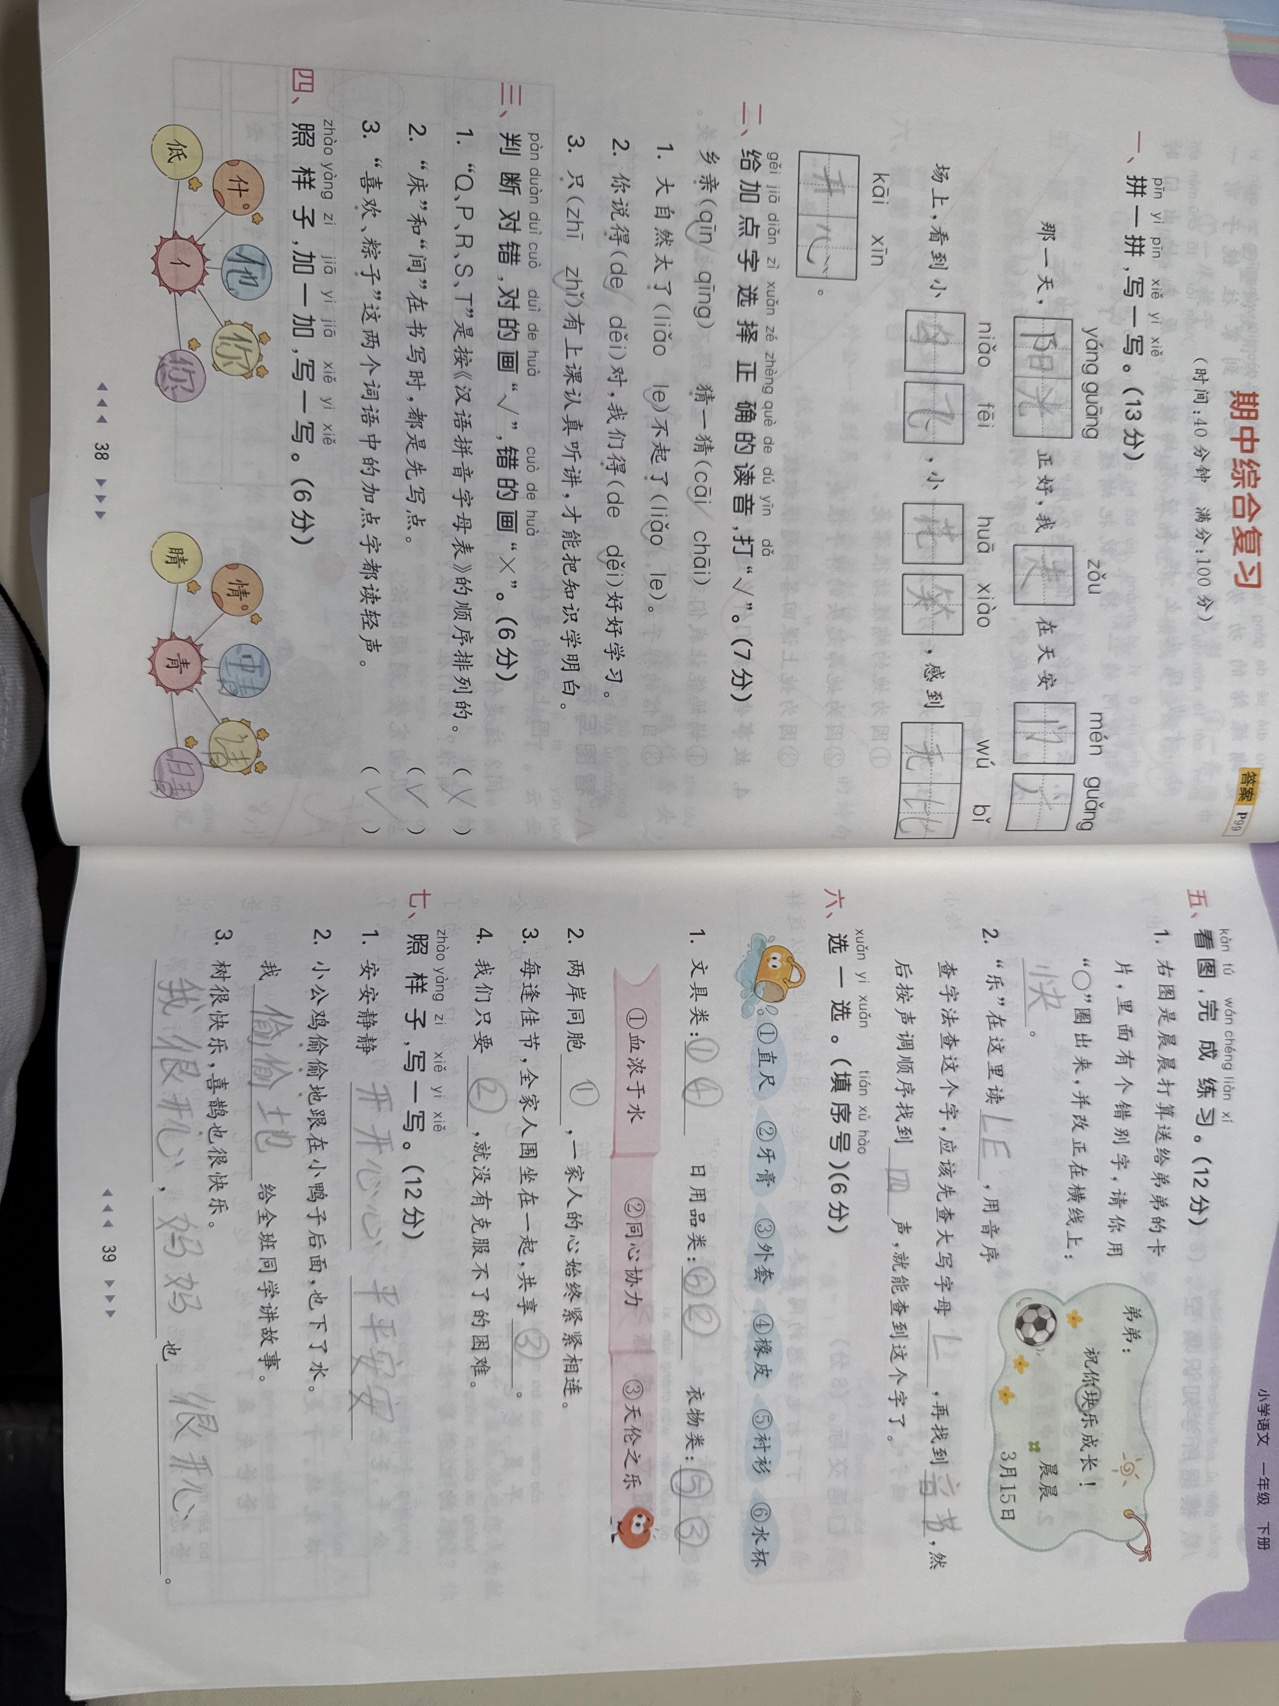 期中综合复习
答案 P99
(时间:40分钟 满分:100分)
pīn yi pīn xiě yi xiě
一、拼一拼,写一写。(13分)
yáng guāng zǒu mén guǎng
那一天,阳光正好,我走在天安门广
niǎo fēi huā xiào wú bǐ
场上,看到小鸟飞,小花笑,感到无比
kāi xīn
开心。
gěi jiā diǎn zì xuǎn zé zhèng què de dú yīn dǎ
二、给加点字选择正确的读音,打“√”。(7分)
乡亲(qīn√ qīng) 猜一猜(cāi√ chāi)
1. 大自然太了(liǎo√ le)不起了(liǎo le)。
2. 你说得(de√ děi)对,我们得(de děi√)好好学习。
3. 只(zhī zhǐ√)有上课认真听讲,才能把知识学明白。
pàn duàn duì cuò duì de huà cuò de huà
三、判断对错,对的画“√”,错的画“×”。(6分)
1. “Q、P、R、S、T”是按《汉语拼音字母表》的顺序排列的。 (×)
2. “床”和“间”在书写时,都是先写点。 (√)
3. “喜欢、粽子”这两个词语中的加点字都读轻声。 (√)
zhào yàng zi jiā yi jiā xiě yi xiě
四、照样子,加一加,写一写。(6分)
低 什 亻 他 你 您
睛 情 青 请 清 晴
38
小学语文 一年级 下册
kàn tú wán chéng liàn xí
五、看图,完成练习。(12分)
1. 右图是晨晨打算送给弟弟的卡
片,里面有个错别字,请你用
“○”圈出来,并改正在横线上:
快。
弟弟:
祝你块乐成长!
晨晨
3月15日
2. “乐”在这里读LE,用音序
查字法查这个字,应该先查大写字母L,再找到音节,然
后按声调顺序找到四声,就能查到这个字了。
xuǎn yi xuǎn tián xù hào
六、选一选。(填序号)(6分)
①直尺 ②牙膏 ③外套 ④橡皮 ⑤衬衫 ⑥水杯
1. 文具类:①④ 日用品类:⑥② 衣物类:⑤③
①血浓于水 ②同心协力 ③天伦之乐
2. 两岸同胞①,一家人的心始终紧紧相连。
3. 每逢佳节,全家人围坐在一起,共享③。
4. 我们只要②,就没有克服不了的困难。
zhào yàng zi xiě yi xiě
七、照样子,写一写。(12分)
1. 安安静静 开开心心 平平安安
2. 小公鸡偷偷地跟在小鸭子后面,也下了水。
我偷偷地给全班同学讲故事。
3. 树很快乐,喜鹊也很快乐。
我很开心,妈妈也很开心。
39